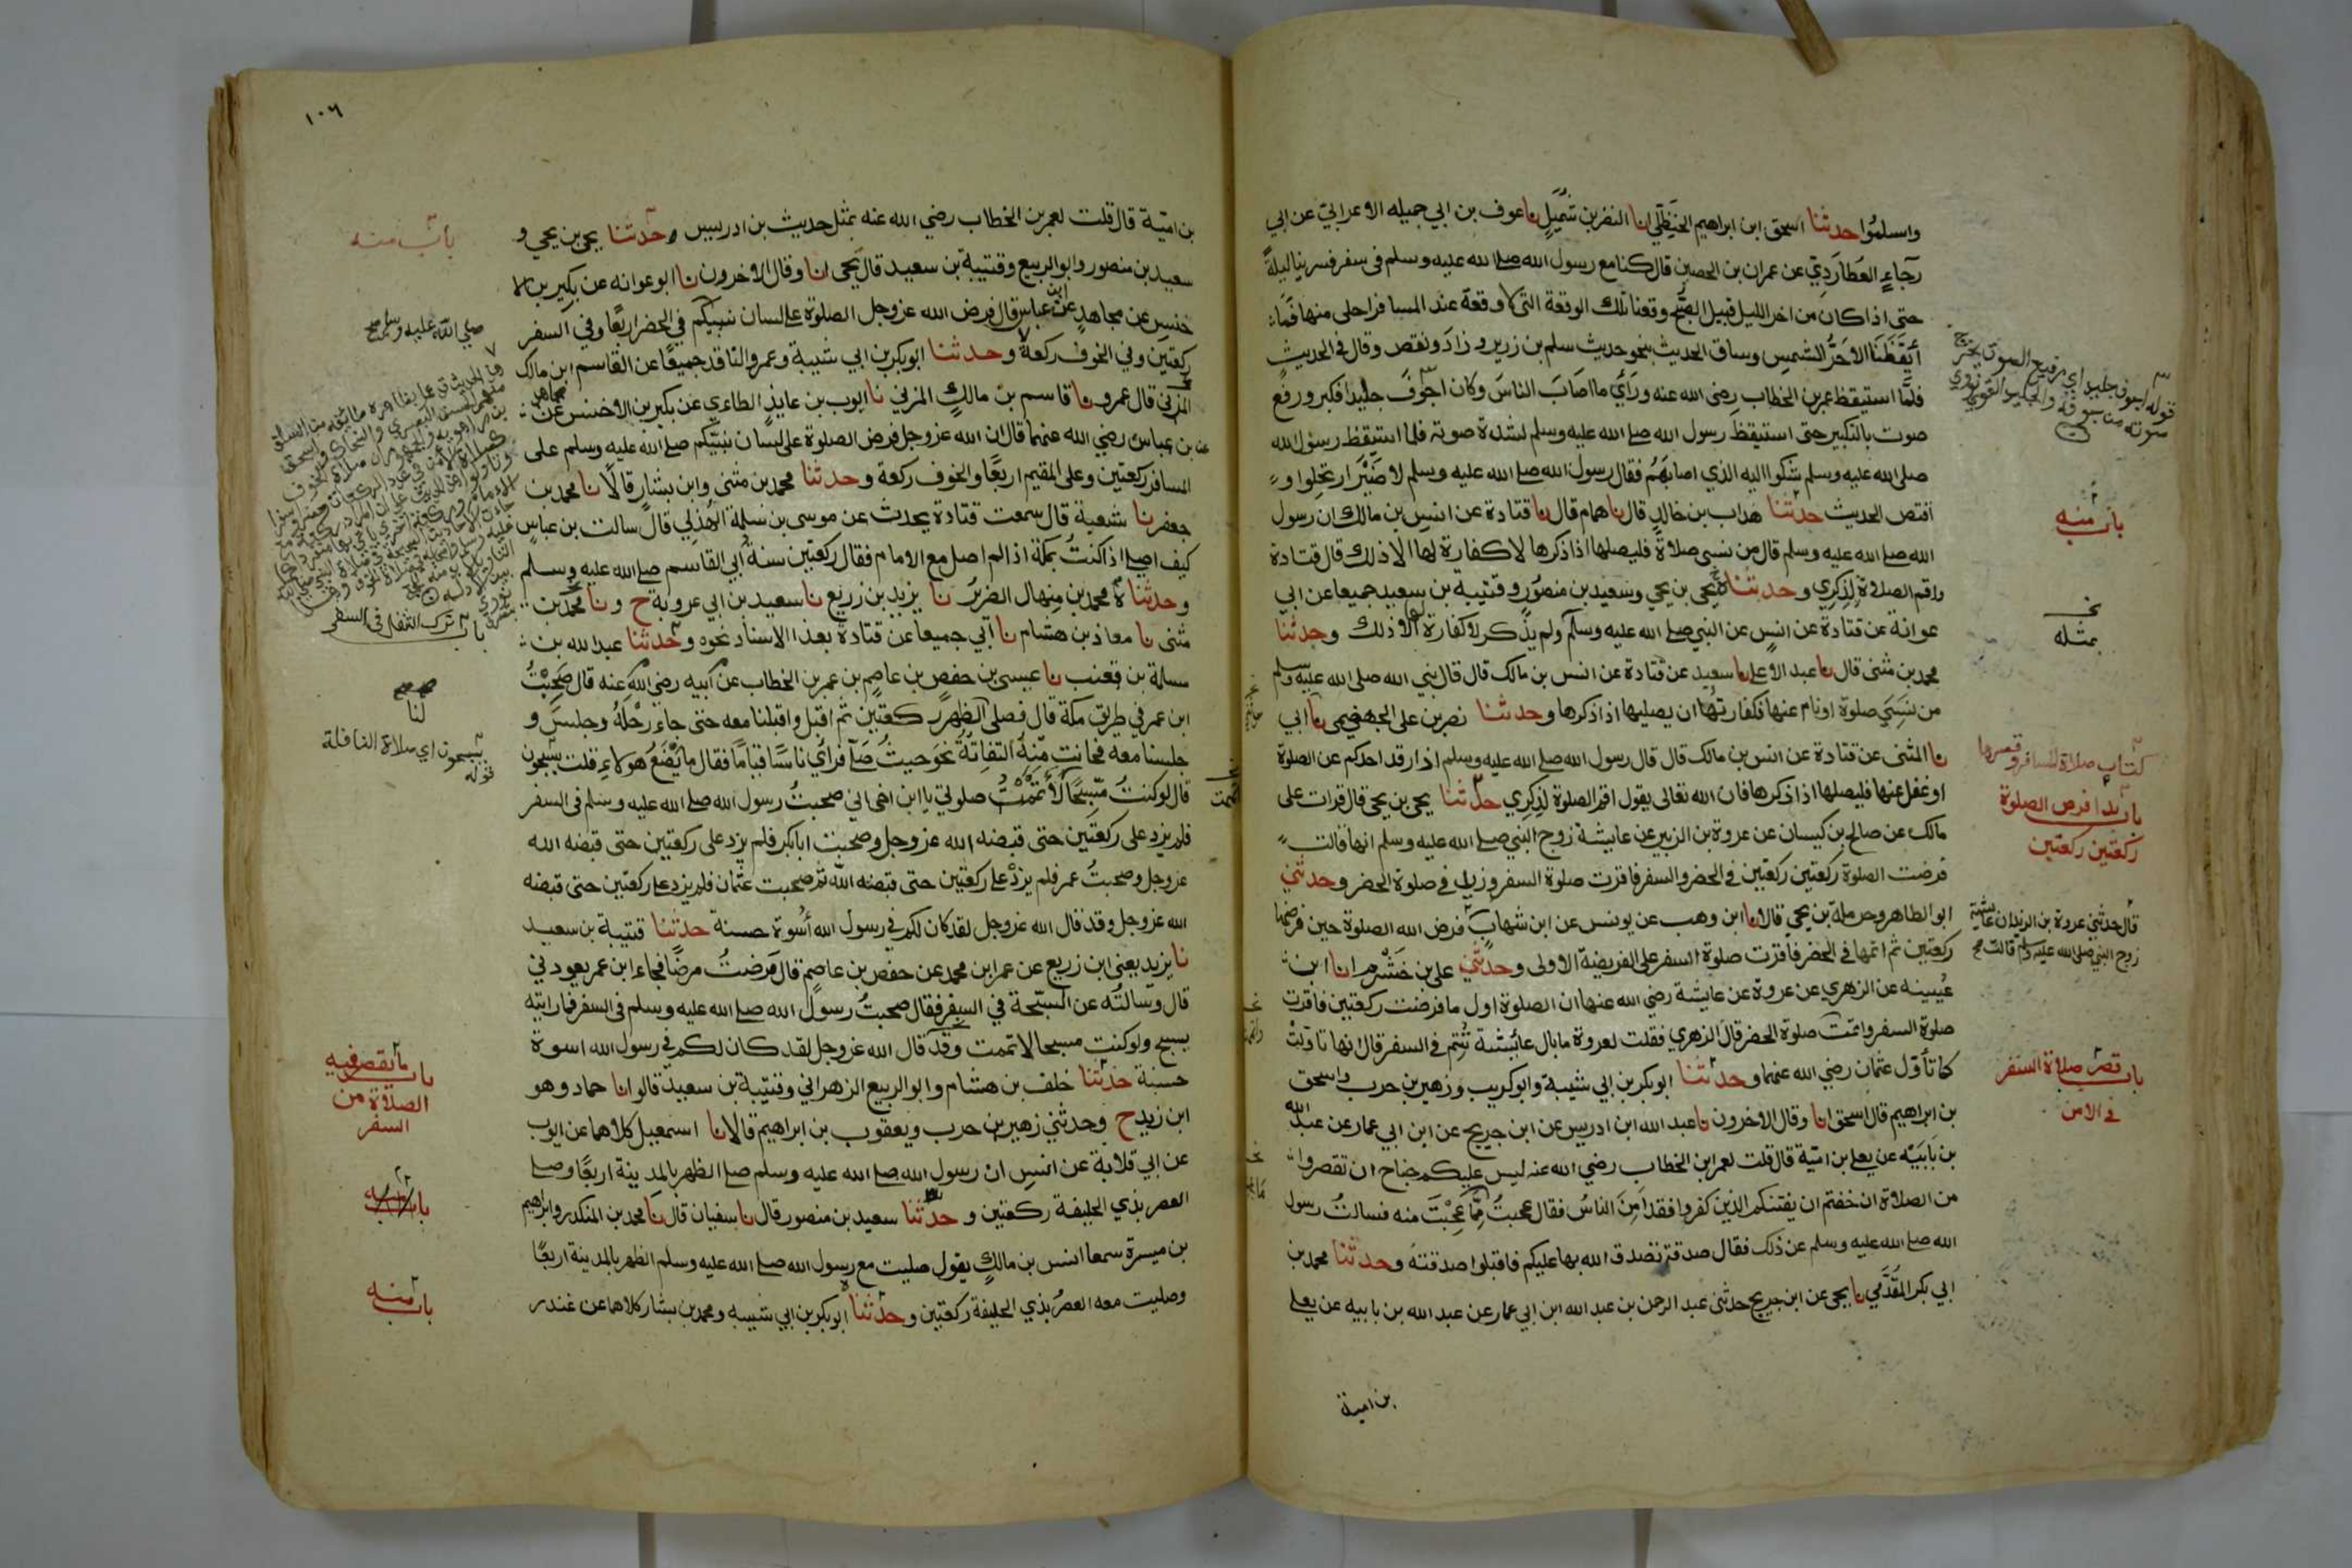 واسلموا حدثنا اسحق ابن ابراهيم الحنظلي انا النضر بن شميل نا عوف بن ابي جميله الاعرابي عن ابي
رجاء العطاردي عن عمران بن الحصين قال كنا مع رسول الله صلى الله عليه وسلم في سفر فسرينا ليلة
حتى اذا كان من اخر الليل قبيل الصبح وقعنا تلك الوقعة التي لا وقعة عند المسافر احلى منها فما
أيقظنا الا حر الشمس وساق الحديث بنحو حديث سلم بن زرير وزاد ونقص وقال في الحديث
فلما استيقظ عمر بن الخطاب رضي الله عنه ورأى ما اصاب الناس وكان اجوف جليدا فكبر ورفع
صوته بالتكبير حتى استيقظ رسول الله صلى الله عليه وسلم لشدة صوته فلما استيقظ رسول الله
صلى الله عليه وسلم شكوا اليه الذي اصابهم فقال رسول الله صلى الله عليه وسلم لا ضير ارتحلوا و
اقتص الحديث حدثنا هداب بن خالد قال نا همام قال نا قتادة عن انس بن مالك ان رسول
الله صلى الله عليه وسلم قال من نسي صلاة فليصلها اذا ذكرها لا كفارة لها الا ذلك قال قتادة
واقم الصلاة لذكري وحدثناه يحيى بن يحيى وسعيد بن منصور وقتيبة بن سعيد جميعا عن ابي
عوانة عن قتادة عن انس عن النبي صلى الله عليه وسلم ولم يذكر لا كفارة لها الا ذلك وحدثنا
محمد بن مثنى قال نا عبد الاعلى نا سعيد عن قتادة عن انس بن مالك قال قال نبي الله صلى الله عليه وسلم
من نسي صلوة او نام عنها فكفارتها ان يصليها اذا ذكرها وحدثنا نصر بن علي الجهضمي نا ابي
نا المثنى عن قتادة عن انس بن مالك قال قال رسول الله صلى الله عليه وسلم اذا رقد احدكم عن الصلوة
او غفل عنها فليصلها اذا ذكرها فان الله تعالى يقول اقم الصلوة لذكري حدثنا يحيى بن يحيى قال قرات على
مالك عن صالح بن كيسان عن عروة بن الزبير عن عايشة زوج النبي صلى الله عليه وسلم انها قالت
فرضت الصلوة ركعتين ركعتين في الحضر والسفر فاقرت صلوة السفر وزيد في صلوة الحضر وحدثني
ابو الطاهر وحرملة بن يحيى قالا نا ابن وهب عن يونس عن ابن شهاب فرض الله الصلوة حين فرضها
ركعتين ثم اتمها في الحضر فأقرت صلوة السفر على الفريضة الاولى وحدثني علي بن خشرم انا ابن
عيينه عن الزهري عن عروة عن عايشة رضي الله عنها ان الصلوة اول ما فرضت ركعتين فاقرت
صلوة السفر واتمت صلوة الحضر قال الزهري فقلت لعروة ما بال عائشة تتم في السفر قال انها تاولت
كما تأول عثمان رضي الله عنهما وحدثنا ابو بكر بن ابي شيبة وابو كريب وزهير بن حرب واسحق
بن ابراهيم قال اسحق انا وقال الاخرون نا عبد الله ابن ادريس عن ابن جريج عن ابن ابي عمار عن عبد الله
بن بابيه عن يعلى بن امية قال قلت لعمر ابن الخطاب رضي الله عنه ليس عليكم جناح ان تقصروا
من الصلاة ان خفتم ان يفتنكم الذين كفروا فقد امن الناس فقال عجبت مما عجبت منه فسالت رسول
الله صلى الله عليه وسلم عن ذلك فقال صدقة تصدق الله بها عليكم فاقبلوا صدقته وحدثنا محمد بن
ابي بكر المقدمي نا يحيى عن ابن جريج حدثني عبد الرحمن بن عبد الله ابن ابي عمار عن عبد الله بن بابيه عن يعلى
بن امية
قوله اجوف جليد اي رفيع الصوت يخرج
صوته من جوفه والجليد القوي نووي
باب منه
نخ
بمثله
كتاب صلاة المسافر وقصرها
باب بدا فرض الصلوة
ركعتين ركعتين
قال حدثني عروة بن الزبير ان عايشة
زوج النبي صلى الله عليه وسلم قالت صح
باب قصر صلاة السفر
في الامن
١٠٦
بن امية قال قلت لعمر بن الخطاب رضي الله عنه بمثل حديث بن ادريس وحدثنا يحيى بن يحيى و
سعيد بن منصور وابو الربيع وقتيبة بن سعيد قال يحيى انا وقال الاخرون نا ابو عوانه عن بكير بن الا
خنس عن مجاهد عن ابن عباس قال فرض الله عز وجل الصلوة على لسان نبيكم في الحضر اربعا وفي السفر
ركعتين وفي الخوف ركعة وحدثنا ابو بكر بن ابي شيبة وعمرو الناقد جميعا عن القاسم ابن مالك
المزني قال عمرو نا قاسم بن مالك المزني نا ايوب بن عايذ الطاءي عن بكير بن الاخنس عن مجاهد
عن بن عباس رضي الله عنهما قال ان الله عز وجل فرض الصلوة على لسان نبيكم صلى الله عليه وسلم على
المسافر ركعتين وعلى المقيم اربعا والخوف ركعة وحدثنا محمد بن مثنى وابن بشار قالا نا محمد بن
جعفر نا شعبة قال سمعت قتادة يحدث عن موسى بن سلمة الهذلي قال سالت بن عباس
كيف اصلي اذا كنت بمكة اذا لم اصل مع الامام فقال ركعتين سنة أبي القاسم صلى الله عليه وسلم
وحدثناه محمد بن منهال الضرير نا يزيد بن زريع نا سعيد بن ابي عروبة ح ونا محمد بن
مثنى نا معاذ بن هشام نا أبي جميعا عن قتادة بهذا الاسناد نحوه وحدثنا عبد الله بن
مسلمة بن قعنب نا عيسى بن حفص بن عاصم بن عمر بن الخطاب عن أبيه رضي الله عنه قال صحبت
ابن عمر في طريق مكة قال فصلى الظهر ركعتين ثم اقبل واقبلنا معه حتى جاء رحله وجلس و
جلسنا معه فحانت منه التفاتة نحو حيث صلى فرأى ناسا قياما فقال ما يصنع هولاء قلت يسبحون
قال لو كنت مسبحا لأتممت صلوتي يا ابن اخي اني صحبت رسول الله صلى الله عليه وسلم في السفر
فلم يزد على ركعتين حتى قبضه الله عز وجل وصحبت ابا بكر فلم يزد على ركعتين حتى قبضه الله
عز وجل وصحبت عمر فلم يزد على ركعتين حتى قبضه الله ثم صحبت عثمان فلم يزد على ركعتين حتى قبضه
الله عز وجل وقد قال الله عز وجل لقد كان لكم في رسول الله أسوة حسنة حدثنا قتيبة بن سعيد
نا يزيد يعني ابن زريع عن عمر ابن محمد عن حفص بن عاصم قال مرضت مرضا فجاء ابن عمر يعودني
قال وسالته عن السبحة في السفر فقال صحبت رسول الله صلى الله عليه وسلم في السفر فما رايته
يسبح ولو كنت مسبحا لاتممت وقد قال الله عز وجل لقد كان لكم في رسول الله اسوة
حسنة حدثنا خلف بن هشام وابو الربيع الزهراني وقتيبة بن سعيد قالوا نا حماد وهو
ابن زيد ح وحدثني زهير بن حرب ويعقوب بن ابراهيم قالا نا اسمعيل كلاهما عن ايوب
عن ابي قلابة عن انس ان رسول الله صلى الله عليه وسلم صلى الظهر بالمدينة اربعا وصلى
العصر بذي الحليفة ركعتين وحدثنا سعيد بن منصور قال نا سفيان قال نا محمد بن المنكدر وابراهيم
بن ميسرة سمعا انس بن مالك يقول صليت مع رسول الله صلى الله عليه وسلم الظهر بالمدينة اربعا
وصليت معه العصر بذي الحليفة ركعتين وحدثنا ابو بكر بن ابي شيبه ومحمد بن بشار كلاهما عن غندر
باب منه
صلى الله عليه وسلم صح
باب ترك التنفل في السفر
لنا
يسبحون اي صلاة النافلة
قوله
باب ما يقصر فيه
الصلاة من
السفر
باب منه
باب منه